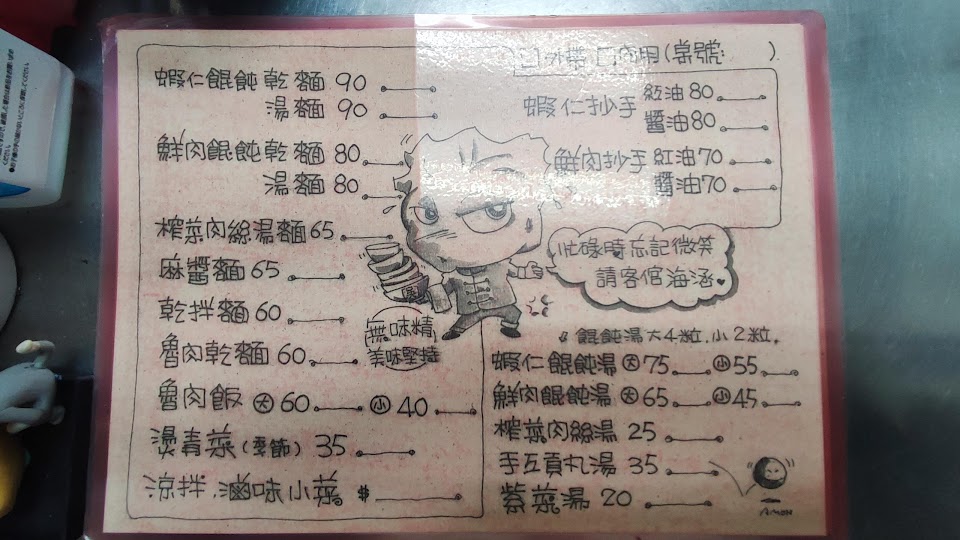 蝦仁餛飩乾麵 90
湯麵 90
鮮肉餛飩乾麵 80
湯麵 80
榨菜肉絲湯麵 65
麻醬麵 65
乾拌麵 60
魯肉乾麵 60
魯肉飯 大 60 小 40
燙青菜(季節) 35
涼拌.滷味小菜 $
無味精
美味堅持
口外帶 口內用(桌號: )
蝦仁抄手 紅油 80
醬油 80
鮮肉抄手 紅油 70
醬油 70
忙碌時忘記微笑
請客倌海涵
餛飩湯大4粒.小2粒.
蝦仁餛飩湯 大 75 小 55
鮮肉餛飩湯 大 65 小 45
榨菜肉絲湯 25
手工貢丸湯 35
紫菜湯 20